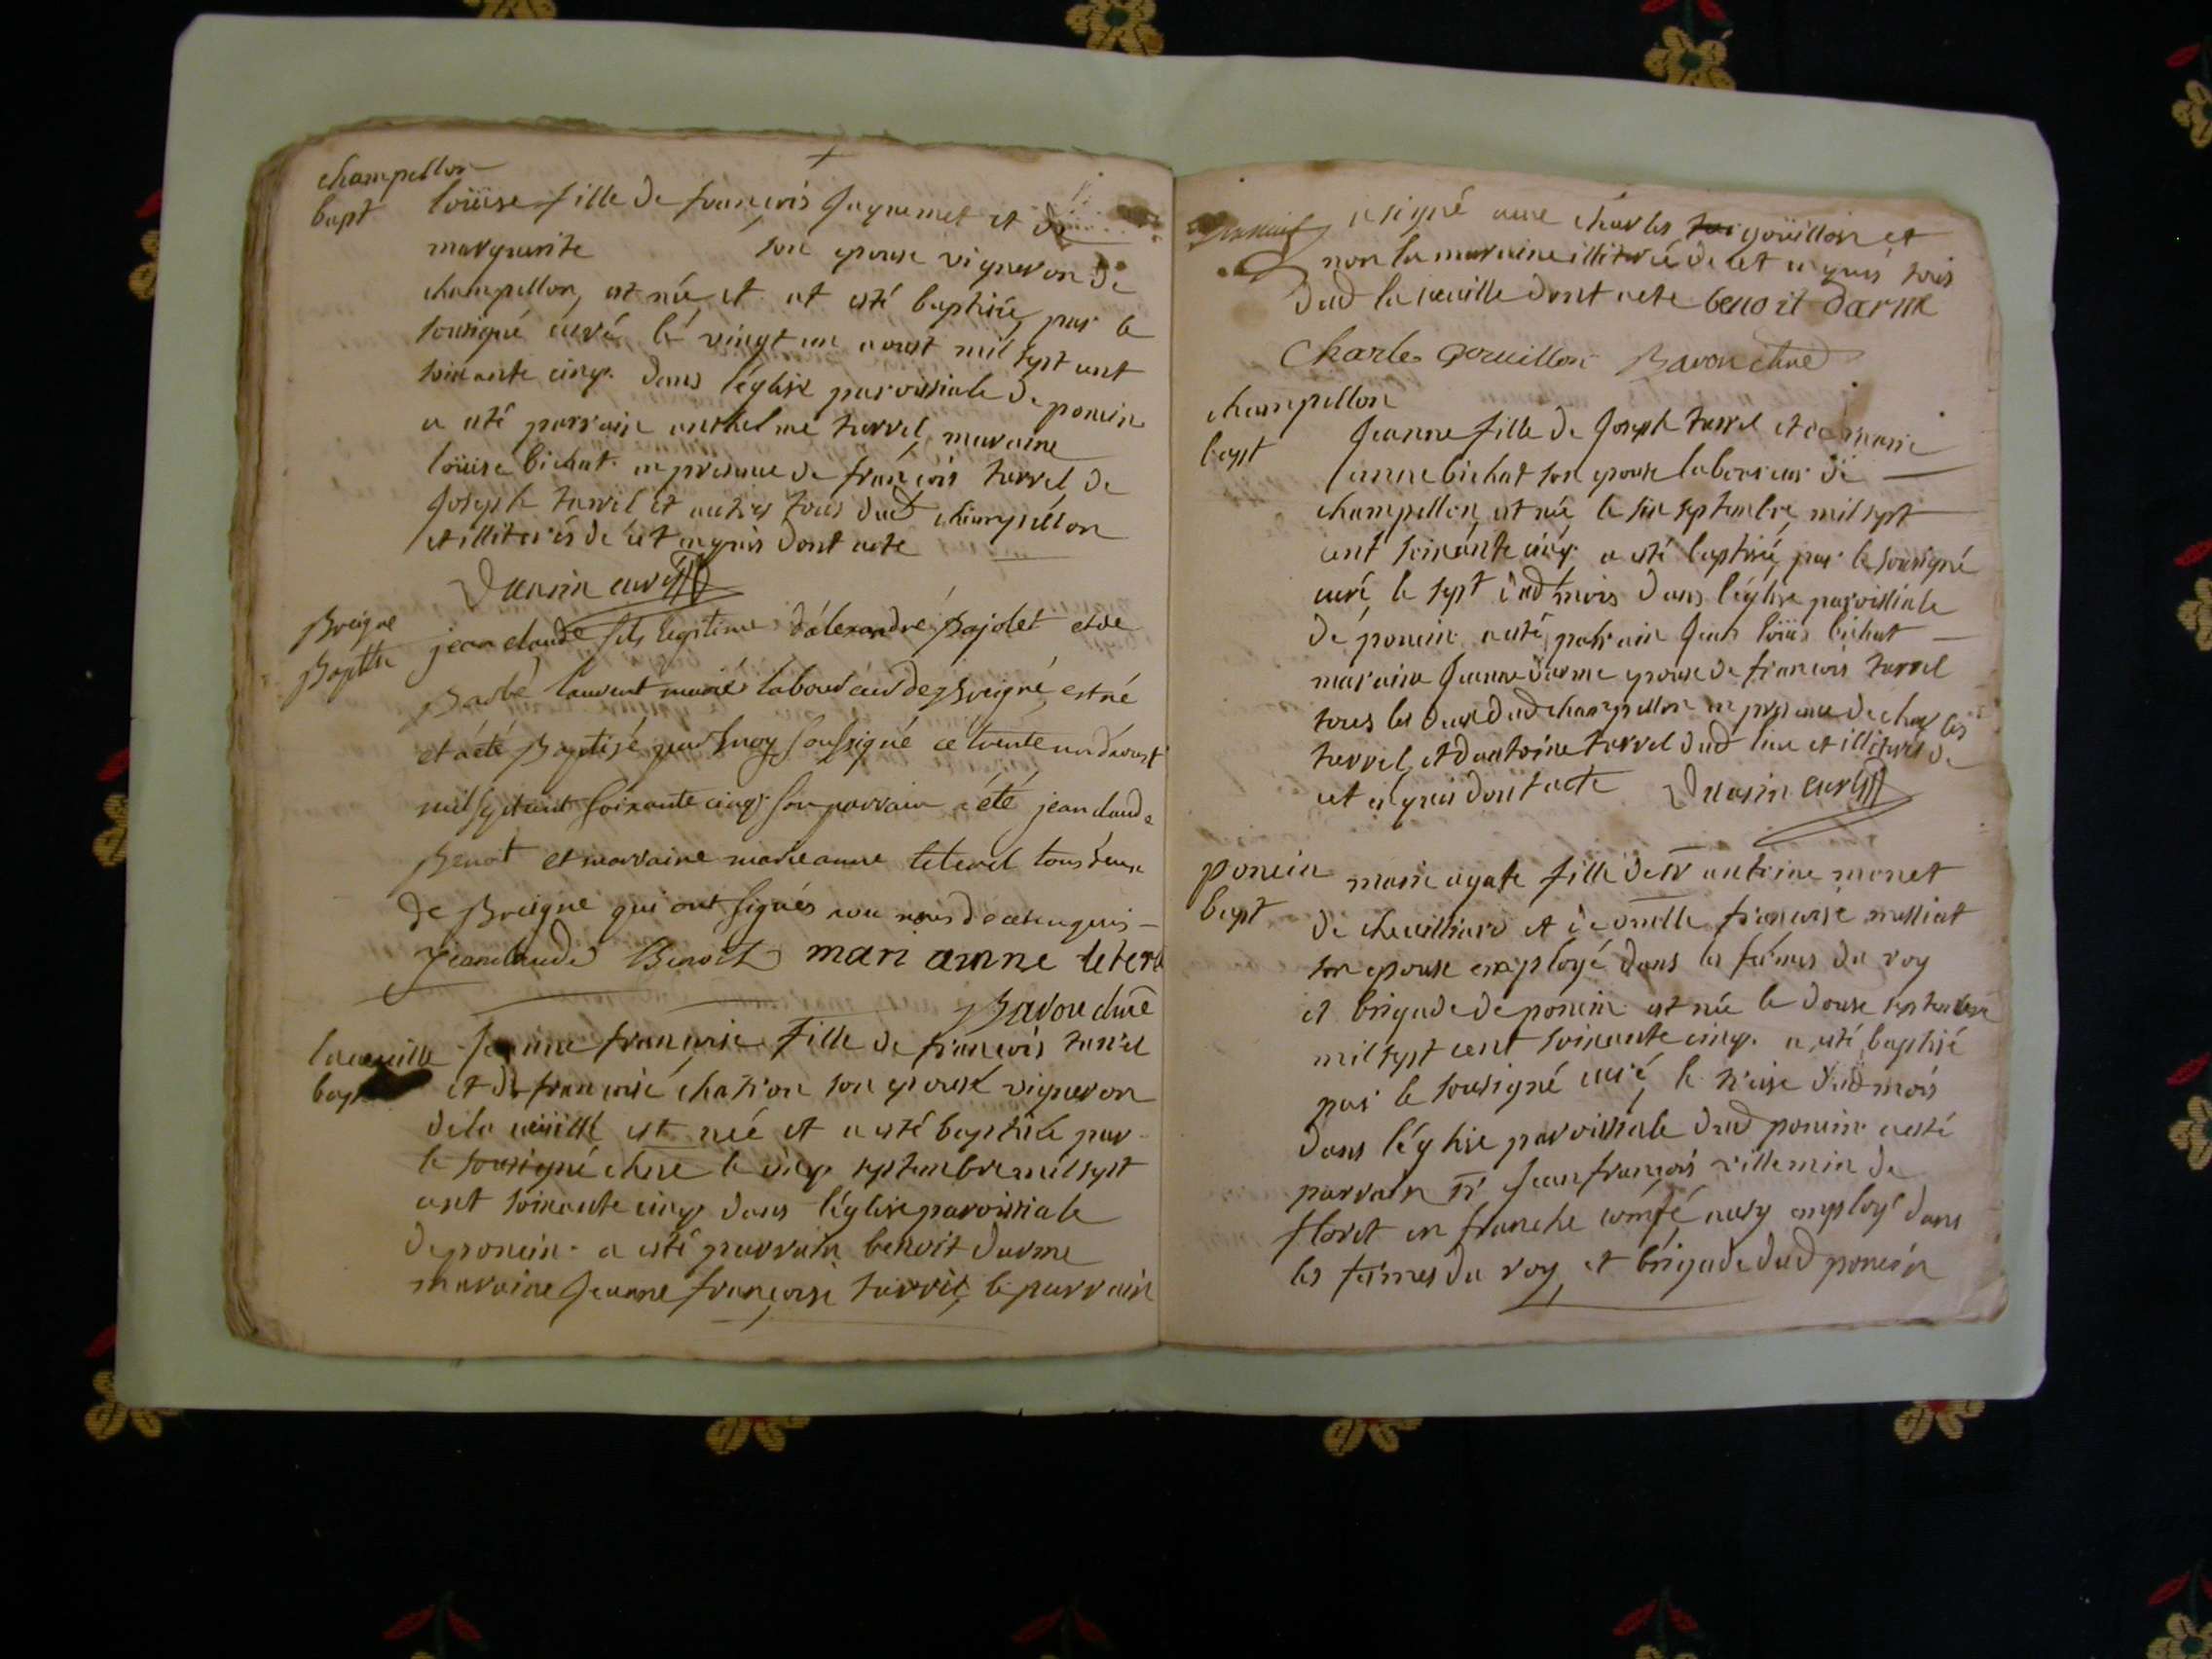 champellon
bapt
loüise fille de françois Juynemet et de
marguerite son epouse vigneron de
champellon, est née et at esté baptisée par le
sousigné curé le vingt un aoust mil sept cent
soixante cinq. dans l'église paroissiale de poncin
a esté parrain anthelme turrel, maraine
loüise bichat en presence de françois turrel de
Joseph turrel et autres tous dud champellon
et illiterés de cet enquis dont acte
curé
Breigne
Baptte
jean claude fils legitime d'alexandre pajolet et de
Barbé laurent mariés laboureurs de Breigne, est né
et a été Baptisé par moy soussigné ce trente un d'aoust
mil sept cent soixante cinq. son parrain a été jean claude
Benoit et marraine marie anne teterel tous deux
de Breigne qui ont signés de ce enquis
Jean claude Benoit mari anne teterel
Bavou
la cueille
bapt
Jeanne françoise fille de françois turrel
et de françoise chatron son epouse vigneron
de la cueille est née et a esté baptisée par
le sousigné le cinq septembre mil sept
cent soixante cinq dans l'église paroissiale
de poncin. a esté parrain benoit darme
maraine Jeanne françoise turrel, le parrain
a signé avec charles goüillon et
non la maraine illiterée de cet enquis tous
dud la cueille dont acte benoit darme
Charles gouillon Bavou
champellon
bapt
Jeanne fille de Joseph turrel et de marie
anne bichat son epouse laboureur de
champellon, est née le six septembre mil sept
cent soixante cinq. a esté baptisée par le sousigné
curé, le sept dud mois dans l'église paroissiale
de poncin a esté parrain Jean loüis bichat
maraine Jeanne darme epouse de françois turrel
tous les deux dud champellon en presence de charles
turrel, et d'antoine turrel dud lieu et illiterés de
cet enquis dont acte curé
poncin
bapt
marie agate fille de sr antoine monet
de cheuilliard et de dmlle françoise messiat
son epouse employé dans les fermes du roy
et brigade de poncin est née le douse septembre
mil sept cent soixante cinq. a esté baptisé
par le sousigné curé, le treise dud mois
dans l'église paroissiale dud poncin a esté
parrain sr Jean françois villemin de
floret en franche comté aussy employé dans
les fermes du roy, et brigade dud poncin